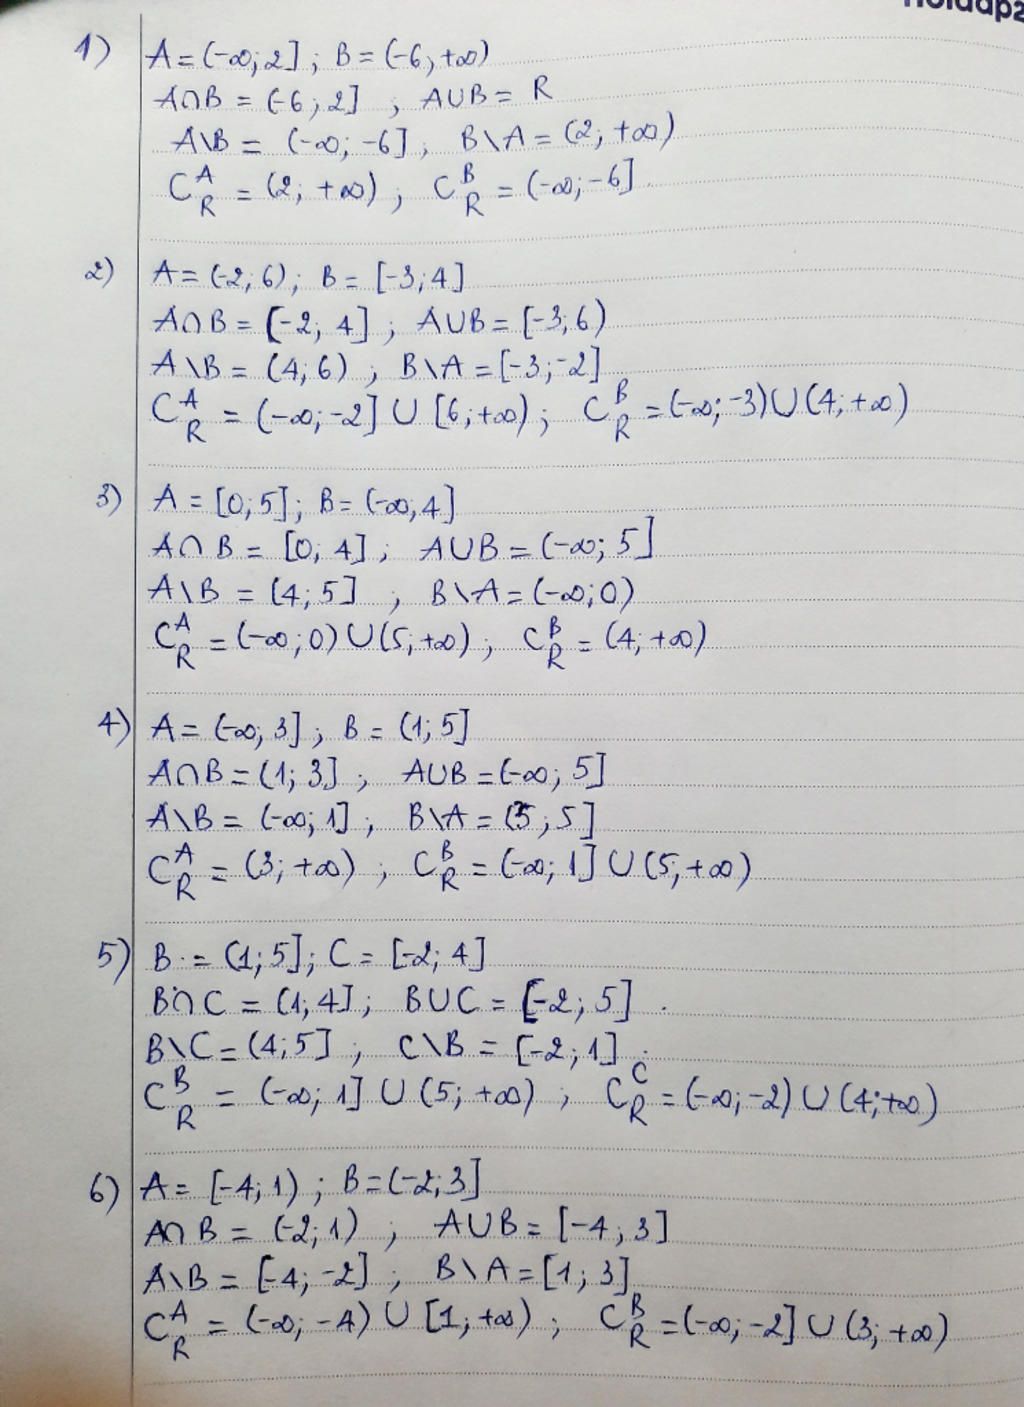 1) A = (-∞; 2] ; B = (-6, +∞)
A∩B = (-6 ; 2] , A∪B = R
A\B = (-∞; -6] , B\A = (2; +∞)
C_R^A = (2; +∞) , C_R^B = (-∞; -6]
2) A = (-2; 6) ; B = [-3; 4]
A∩B = [-2; 4] ; A∪B = [-3; 6)
A\B = (4; 6) , B\A = [-3; -2]
C_R^A = (-∞; -2] ∪ [6; +∞) ; C_R^B = (-∞; -3) ∪ (4; +∞)
3) A = [0; 5] ; B = (-∞, 4]
A∩B = [0; 4] ; A∪B = (-∞; 5]
A\B = (4; 5] , B\A = (-∞; 0)
C_R^A = (-∞; 0) ∪ (5; +∞) ; C_R^B = (4; +∞)
4) A = (-∞; 3] ; B = (1; 5]
A∩B = (1; 3] , A∪B = (-∞; 5]
A\B = (-∞; 1] , B\A = (3 ; 5]
C_R^A = (3; +∞) , C_R^B = (-∞; 1] ∪ (5; +∞)
5) B = (1; 5] ; C = [-2; 4]
B∩C = (1; 4] ; B∪C = [-2; 5] .
B\C = (4; 5] , C\B = [-2; 1] ;
C_R^B = (-∞; 1] ∪ (5; +∞) , C_R^C = (-∞; -2) ∪ (4; +∞)
6) A = [-4; 1) ; B = (-2; 3]
A∩B = (-2; 1) , A∪B = [-4; 3]
A\B = [-4; -2] , B\A = [1; 3]
C_R^A = (-∞; -4) ∪ [1; +∞) ; C_R^B = (-∞; -2] ∪ (3; +∞)